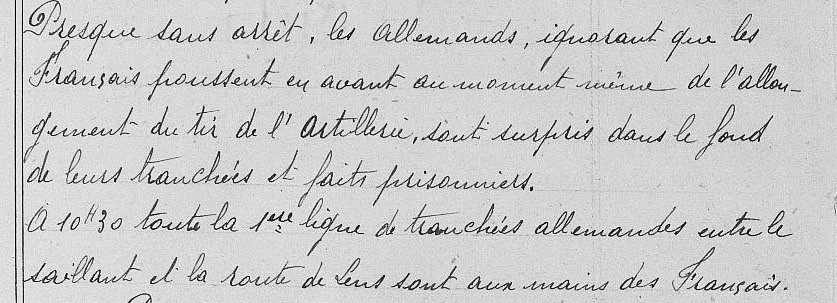 Presque sans arrêt, les allemands, ignorant que les
Français poussent en avant au moment même de l'allon-
gement du tir de l'artillerie, sont surpris dans le fond
de leurs tranchées et faits prisonniers.
A 10H30 toute la 1ère ligne de tranchées allemandes entre le
saillant et la route de Lens sont aux mains des Français.